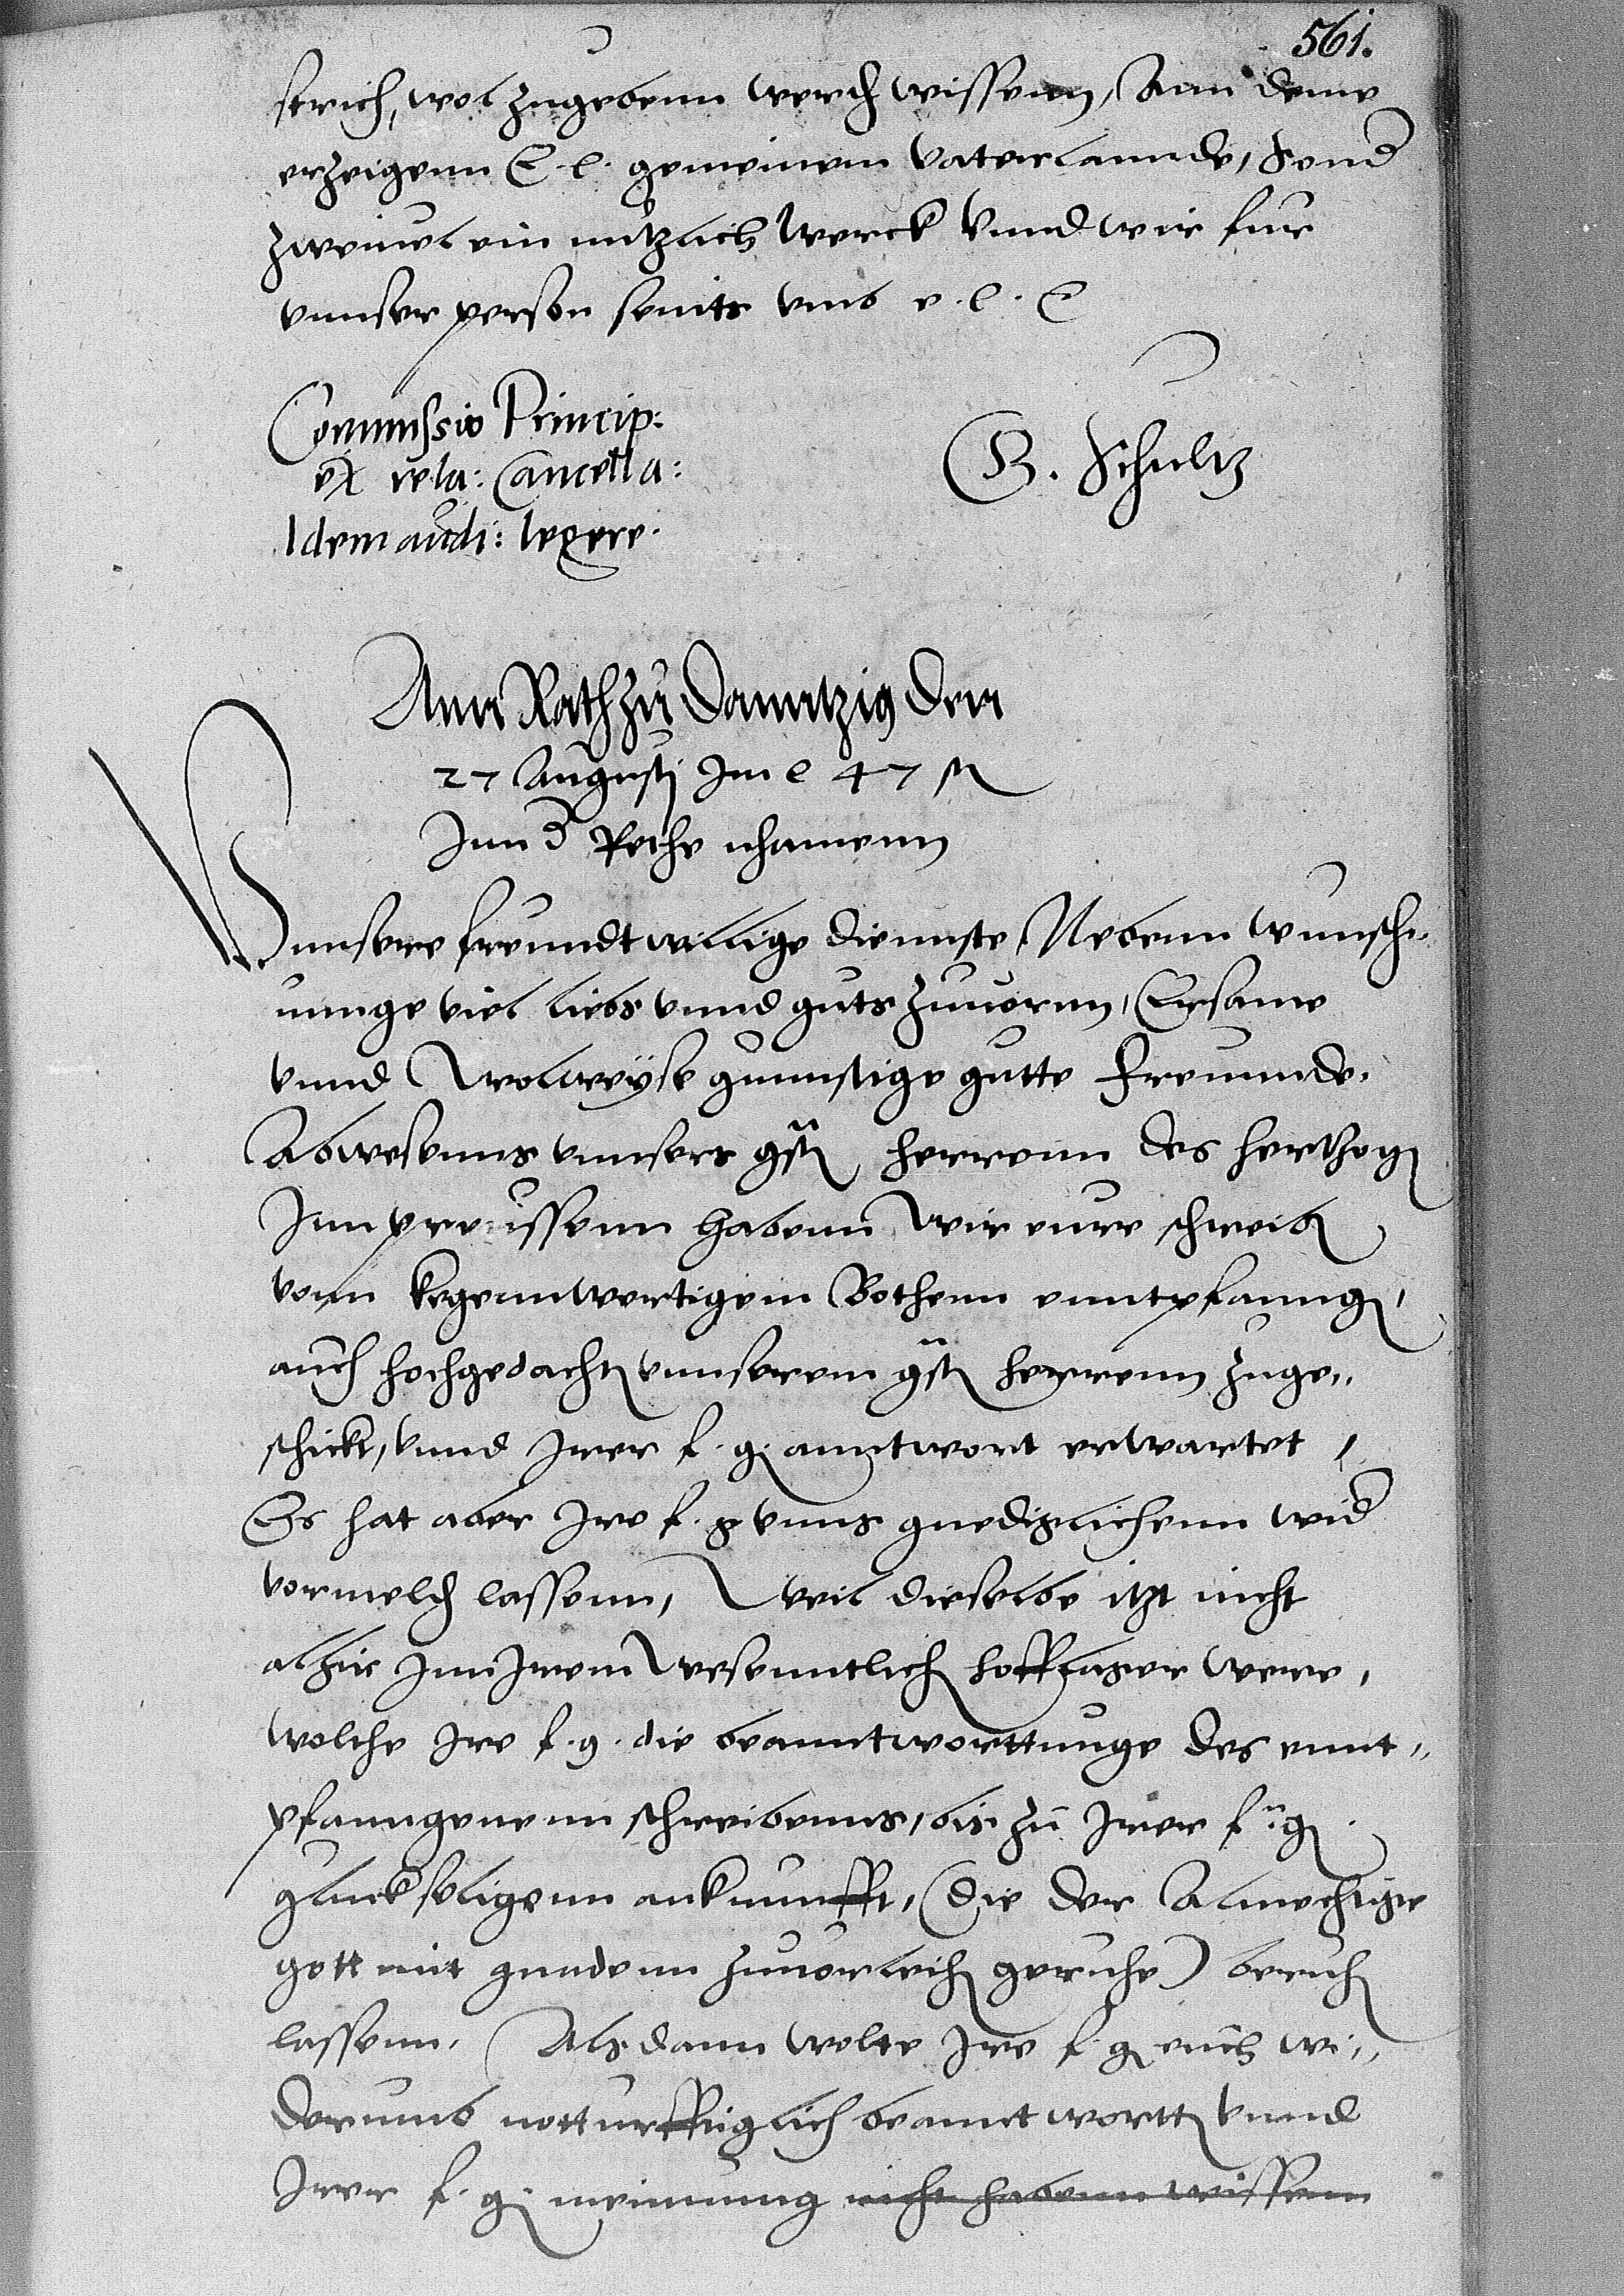 561.
sterich, wol zugebenn werden wissenn, Ann deme
erzeigenn E. l. gemeinem vaterlannde, sonder
zweiuel ein nutzlich werck vnnd wir fur
vnnser person seints vmb e. l. ꝛc
Commissio Princip:
ex rela: Cancella:
Idem audi: legere.
B. Schultz
Ann Rath zu Danntzig den
27 Augusti Im e 47 sten
Inn der Rethe nhamenn
Vnnsere freundtwillige diennste, Nebenn wunsch„
unnge viel liebs vnnd guts zuuornn, Ersame
vnnd Wolweyse gunnstige gutte freunnde,
Abwesenns vnnsers gsten herrenn des hertzogen
Inn preussenn habenn wir eure schreiben
vonn kegennwertigem Bothenn enntpfanngen,
auch hochgedachten vnnserem gsten herrenn zuge„
schickt, vnnd Irer f. g. anntwort erwartet,
Es hat aber Ire f. g vnns gnediglichenn wider
vormelden lassenn, Weil dieselbe itzt nicht
alhie Inn Irem wesenntlichen hofflager were,
wolche Ire f. g. die beanntworttunge des ennt„
pfanngenenn schreibenns, bis zu Irer f. g.
gluckseligenn ankunfft, (die der Almechtige
gott mit gnadenn zuuorleihen geruhe) beruhen
lassenn. Als dann wolte Ire f. g. euch wi„
derumb notturfftiglich beanntwortten vnnd
Irer f. g. meinnung nicht habenn wissenn